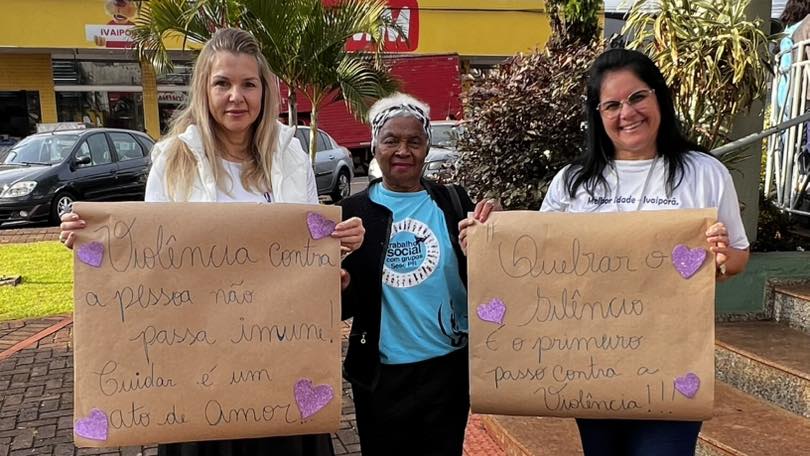 IVAIPORÃ
Violência contra
a pessoa não
passa imune!
Cuidar é um
ato de Amor!
trabalho
social
com grupos
Sesc PR
Melhor Idade - Ivaiporã.
"Quebrar o
Silêncio
é o primeiro
passo contra a
Violência!!!